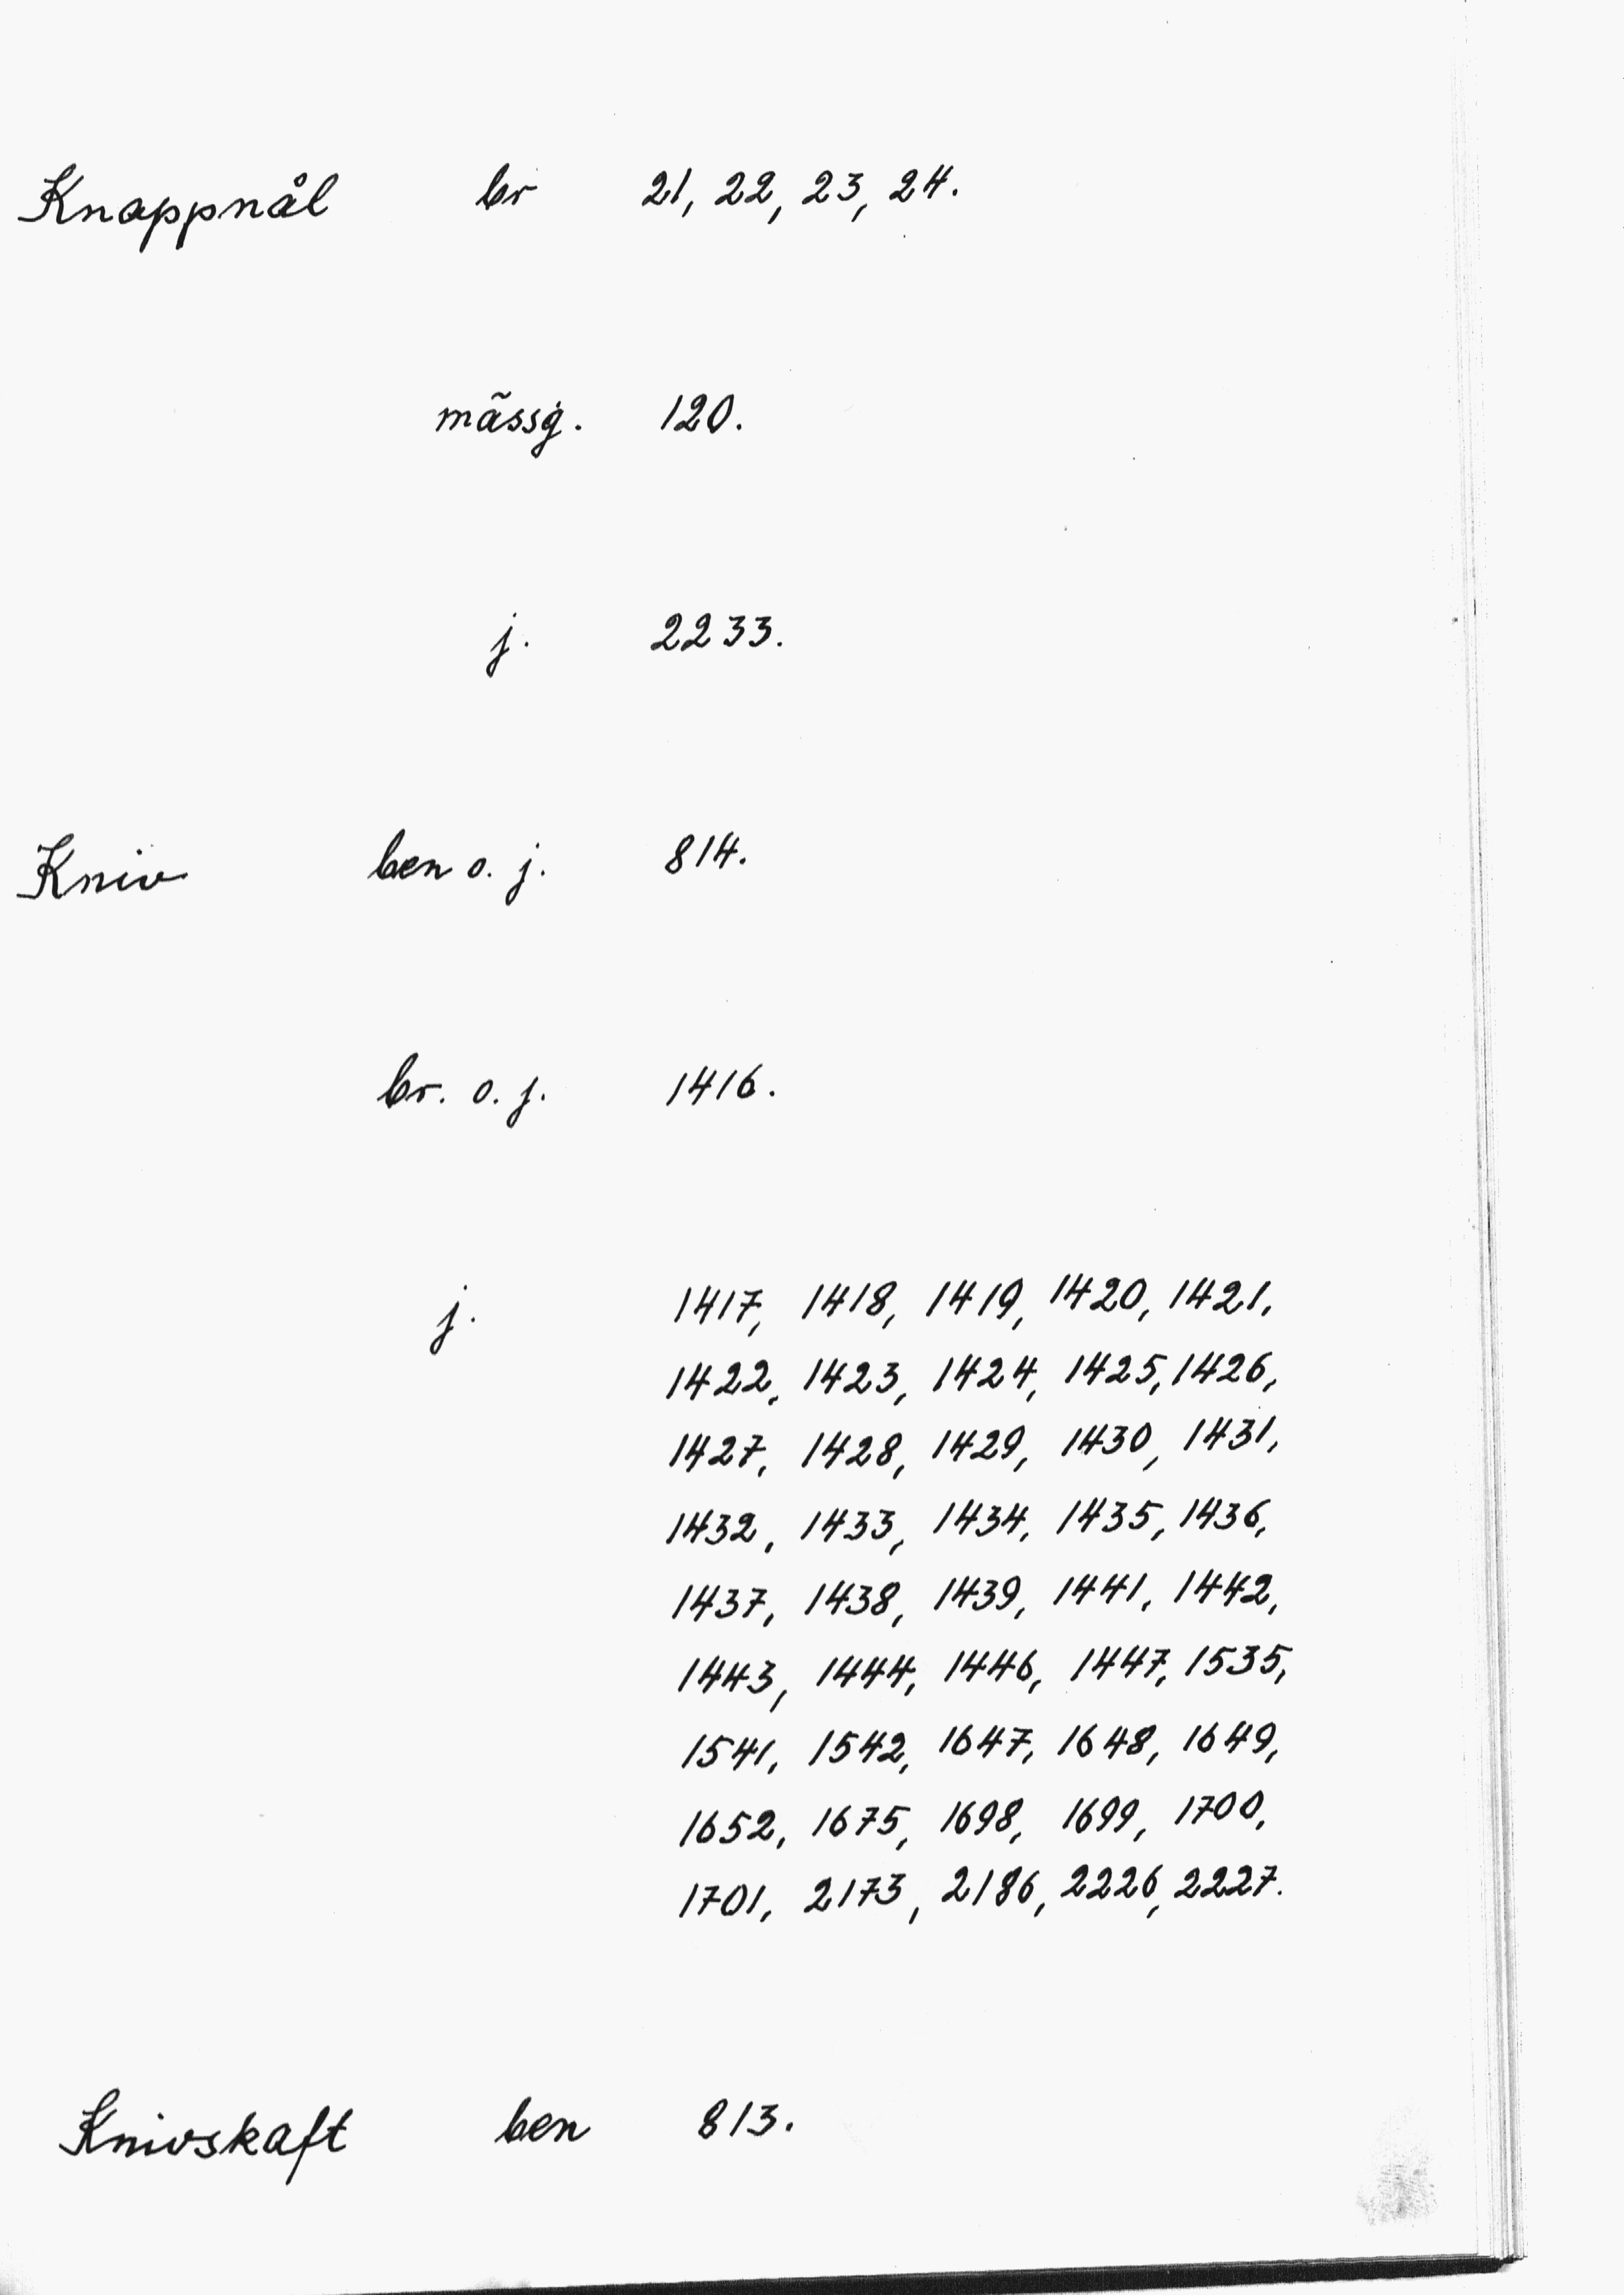 Knappnål br 21, 22, 23, 24.
mässg. 120.
j. 2233.
Kniv ben o. j. 814.
br. o. j. 1416.
j. 1417, 1418, 1419, 1420, 1421,
1422, 1423, 1424, 1425, 1426,
1427, 1428, 1429, 1430, 1431,
1432, 1433, 1434, 1435, 1436,
1437, 1438, 1439, 1441, 1442,
1443, 1444, 1446, 1447, 1535,
1541, 1542, 1647, 1648, 1649,
1652, 1675, 1698, 1699, 1700,
1701, 2173, 2186, 2226, 2227.
Knivskaft ben 813.